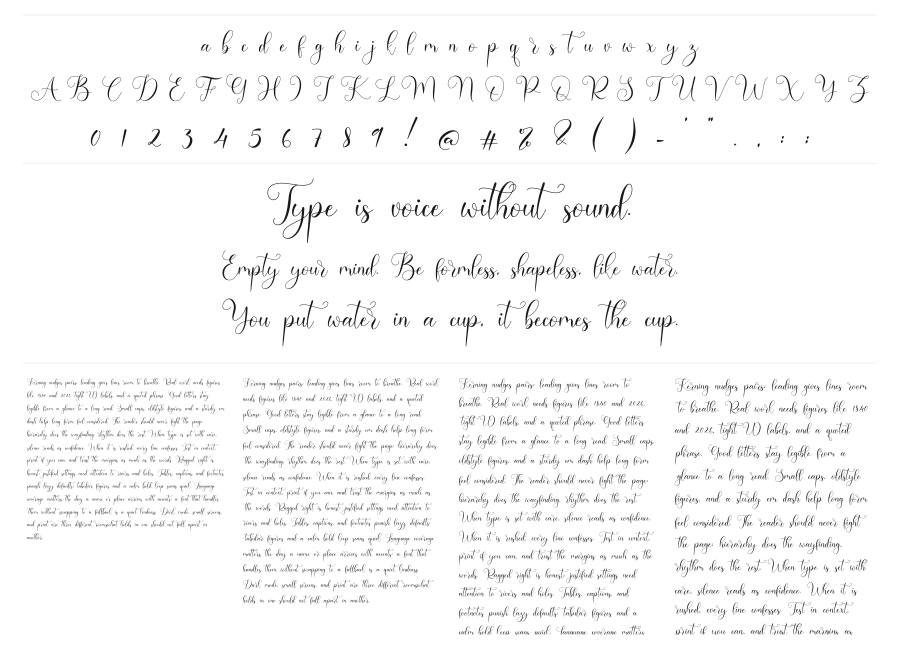 a b c d e f g h i j k l m n o p q r s t u v w x y z
A B C D E F G H I J K L M N O P Q R S T U V W X Y Z
0 1 2 3 4 5 6 7 8 9 ! @ # % & ( ) - ' " . , : ;
Type is voice without sound.
Empty your mind. Be formless, shapeless, like water.
You put water in a cup, it becomes the cup.
Kerning nudges pairs; leading gives lines room to breathe. Real work needs figures
like 1840 and 2026, tight UI labels, and a quoted phrase. Good letters stay
legible from a glance to a long read. Small caps, oldstyle figures, and a sturdy em
dash help long form feel considered. The reader should never fight the page;
hierarchy does the wayfinding, rhythm does the rest. When type is set with care,
silence reads as confidence. When it is rushed, every line confesses. Test in context,
print if you can, and trust the margins as much as the words. Ragged right is
honest; justified setting needs attention to rivers and holes. Tables, captions, and footnotes
punish lazy defaults; tabular figures and a calm bold keep scans quiet. Language
coverage matters the day a name or place arrives with accents; a font that handles
them without swapping to a fallback is a quiet kindness. Dark mode, small screens,
and print are three different rooms; what holds in one should not fall apart in
another.
Kerning nudges pairs; leading gives lines room to breathe. Real work
needs figures like 1840 and 2026, tight UI labels, and a quoted
phrase. Good letters stay legible from a glance to a long read.
Small caps, oldstyle figures, and a sturdy em dash help long form
feel considered. The reader should never fight the page; hierarchy does
the wayfinding, rhythm does the rest. When type is set with care,
silence reads as confidence. When it is rushed, every line confesses.
Test in context, print if you can, and trust the margins as much as
the words. Ragged right is honest; justified setting needs attention to
rivers and holes. Tables, captions, and footnotes punish lazy defaults;
tabular figures and a calm bold keep scans quiet. Language coverage
matters the day a name or place arrives with accents; a font that
handles them without swapping to a fallback is a quiet kindness.
Dark mode, small screens, and print are three different rooms; what
holds in one should not fall apart in another.
Kerning nudges pairs; leading gives lines room to
breathe. Real work needs figures like 1840 and 2026,
tight UI labels, and a quoted phrase. Good letters
stay legible from a glance to a long read. Small caps,
oldstyle figures, and a sturdy em dash help long form
feel considered. The reader should never fight the page;
hierarchy does the wayfinding, rhythm does the rest.
When type is set with care, silence reads as confidence.
When it is rushed, every line confesses. Test in context,
print if you can, and trust the margins as much as the
words. Ragged right is honest; justified setting needs
attention to rivers and holes. Tables, captions, and
footnotes punish lazy defaults; tabular figures and a
calm bold keep scans quiet. Language coverage matters
Kerning nudges pairs; leading gives lines room
to breathe. Real work needs figures like 1840
and 2026, tight UI labels, and a quoted
phrase. Good letters stay legible from a
glance to a long read. Small caps, oldstyle
figures, and a sturdy em dash help long form
feel considered. The reader should never fight
the page; hierarchy does the wayfinding,
rhythm does the rest. When type is set with
care, silence reads as confidence. When it is
rushed, every line confesses. Test in context,
print if you can, and trust the margins as